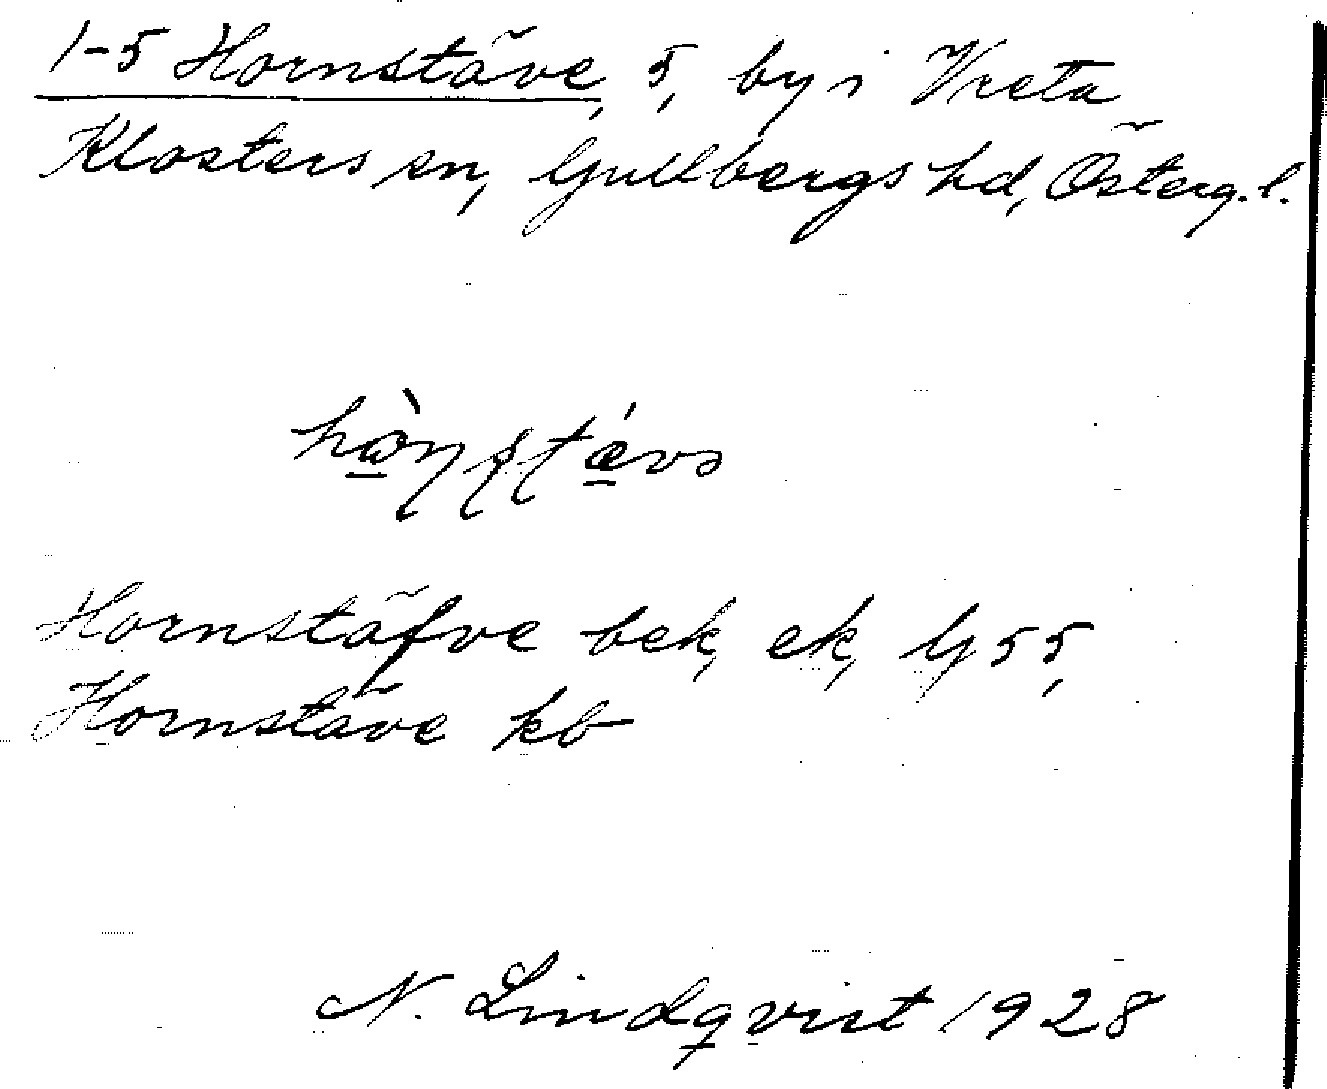 1-5 Hornstäve, 5, by i Vreta
Klosters sn, Gullbergs hd, Österg.l.
Hornstäfve bek, ek, G 55,
Hornstäve kb
N. Lindqvist 1928